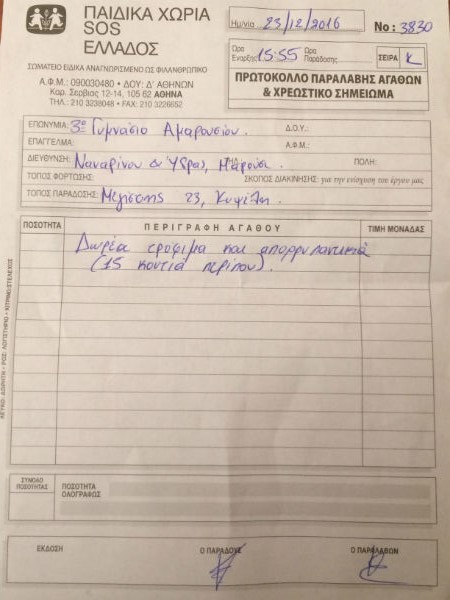 ΠΑΙΔΙΚΑ ΧΩΡΙΑ
SOS
ΕΛΛΑΔΟΣ
ΣΩΜΑΤΕΙΟ ΕΙΔΙΚΑ ΑΝΑΓΝΩΡΙΣΜΕΝΟ ΩΣ ΦΙΛΑΝΘΡΩΠΙΚΟ
Α.Φ.Μ.: 090030480 • ΔΟΥ: Δ' ΑΘΗΝΩΝ
Καρ. Σερβίας 12-14, 105 62 ΑΘΗΝΑ
ΤΗΛ.: 210 3238048 • FAX: 210 3226652
Ημ/νία 23/12/2016 No: 3830
Ώρα Έναρξης 15:55 Ώρα Παράδοσης ΣΕΙΡΑ Κ
ΠΡΩΤΟΚΟΛΛΟ ΠΑΡΑΛΑΒΗΣ ΑΓΑΘΩΝ
& ΧΡΕΩΣΤΙΚΟ ΣΗΜΕΙΩΜΑ
ΕΠΩΝΥΜΙΑ: 3ο Γυμνάσιο Αμαρουσίου. Δ.Ο.Υ.:
ΕΠΑΓΓΕΛΜΑ: Α.Φ.Μ.:
ΔΙΕΥΘΥΝΣΗ: Ναυαρίνου & Ύδρας, Μαρούσι. ΤΗΛ.: ΠΟΛΗ:
ΤΟΠΟΣ ΦΟΡΤΩΣΗΣ: ΣΚΟΠΟΣ ΔΙΑΚΙΝΗΣΗΣ: για την ενίσχυση του έργου μας
ΤΟΠΟΣ ΠΑΡΑΔΟΣΗΣ: Μεγίστης 23, Κυψέλη.
ΠΟΣΟΤΗΤΑ ΠΕΡΙΓΡΑΦΗ ΑΓΑΘΟΥ ΤΙΜΗ ΜΟΝΑΔΑΣ
Δωρεά τρόφιμα και απορρυπαντικά
(15 κουτιά περίπου).
ΛΕΥΚΟ: ΔΩΡΗΤΗ - ΡΟΖ: ΛΟΓΙΣΤΗΡΙΟ - ΚΙΤΡΙΝΟ: ΣΤΕΛΕΧΟΣ
ΣΥΝΟΛΟ ΠΟΣΟΤΗΤΑΣ ΠΟΣΟΤΗΤΑ ΟΛΟΓΡΑΦΩΣ
ΕΚΔΟΣΗ Ο ΠΑΡΑΔΟΥΣ Ο ΠΑΡΑΛΑΒΩΝ